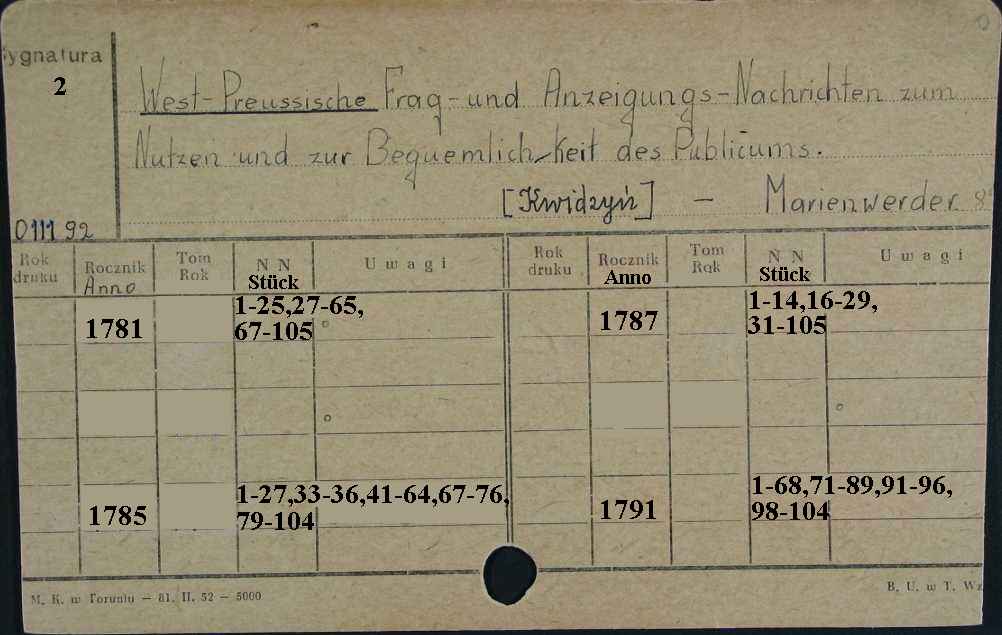 Sygnatura
2
West-Preussische Frag-und Anzeigungs-Nachrichten zum
Nutzen und zur Bequemlich-keit des Publicums.
[Kwidzyń] - Marienwerder
011192
Rok druku Rocznik Anno Tom Rok N N Stück Uwagi Rok druku Rocznik Anno Tom Rok N N Stück Uwagi
1781 1-25,27-65,
67-105
1787 1-14,16-29,
31-105
1785 1-27,33-36,41-64,67-76,
79-104
1791 1-68,71-89,91-96,
98-104
M. K. w Toruniu — 81. II. 52 — 5000
B. U. w T. Wz